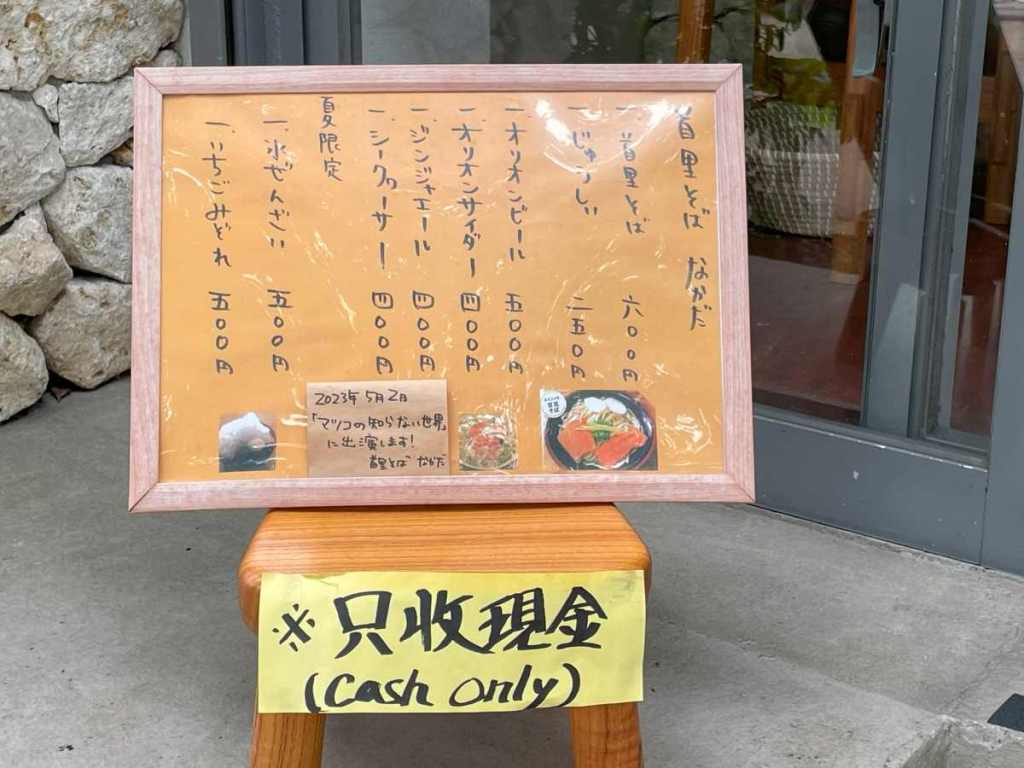 首里そば なかだ
一、首里そば 六〇〇円
一、じゅうしぃ 二五〇円
一、オリオンビール 五〇〇円
一、オリオンサイダー 四〇〇円
一、ジンジャエール 四〇〇円
一、シークヮーサー 四〇〇円
夏限定
一、氷ぜんざい 五〇〇円
一、いちごみぞれ 五〇〇円
2023年 5月2日
「マツコの知らない世界」
に出演します!
首里そば なかだ
※只收現金
(Cash only)